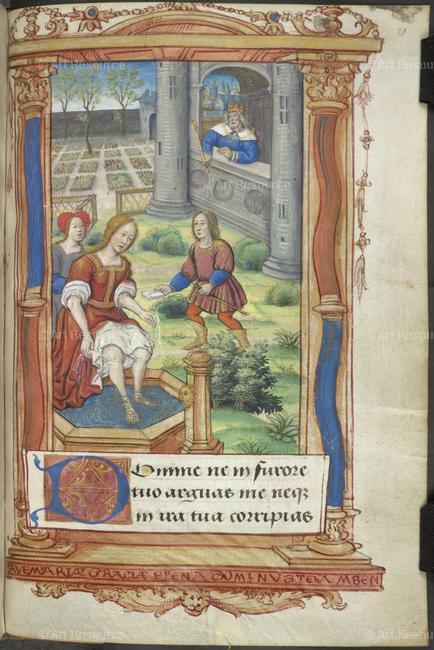 81
Domine ne in furore
tuo arguas me neqȝ
in ira tua corripias
AVE MARIA GRACIA PLENA DOMINVS TECVM BEN
© Art Resource